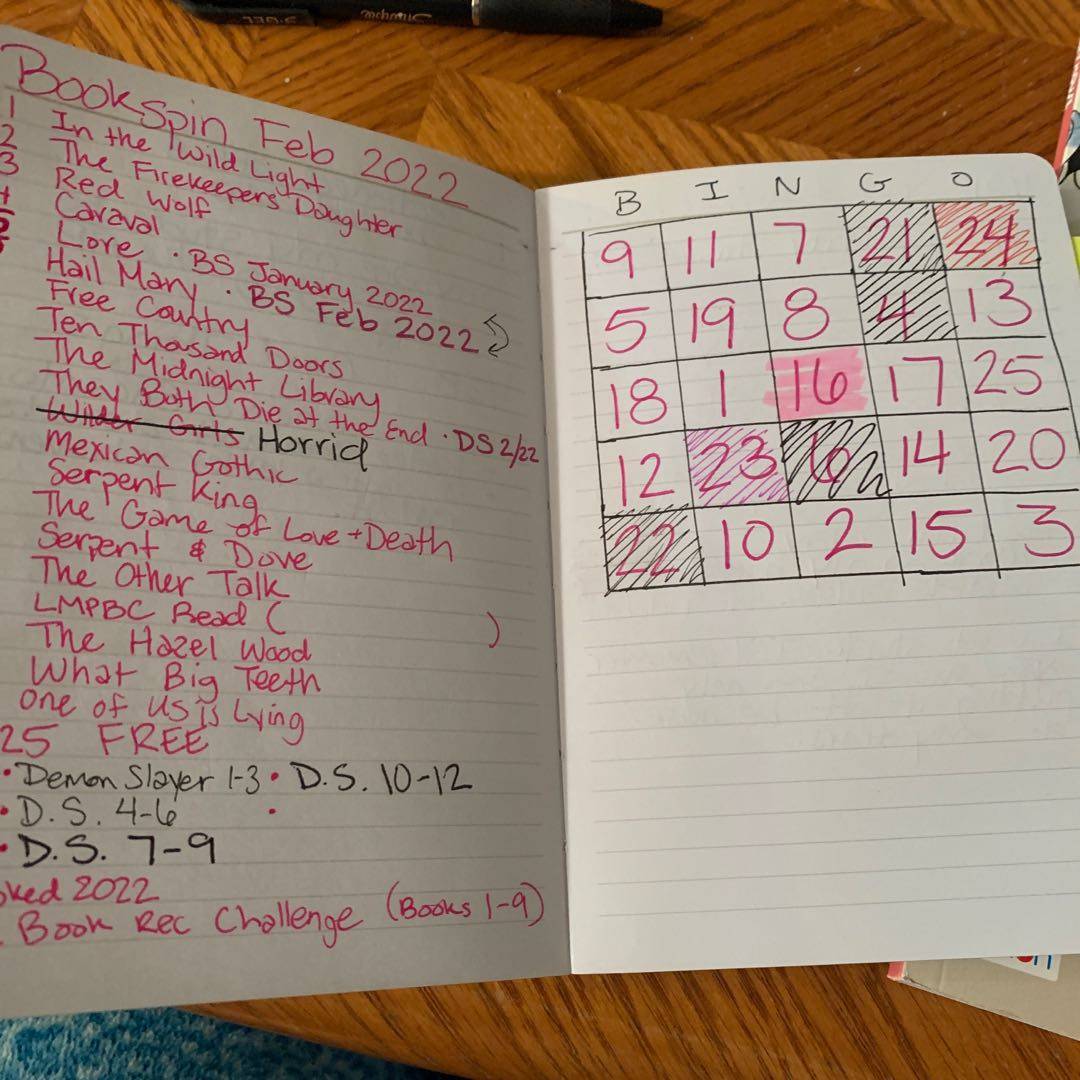 Bookspin Feb 2022
1 In the Wild Light
2 The Firekeepers Daughter
3 Red Wolf
4 Caraval
5 Lore · BS January 2022
Hail Mary · BS Feb 2022
Free Country
Ten Thousand Doors
The Midnight Library
They Both Die at the End · DS 2/22
Wilder Girls Horrid
Mexican Gothic
Serpent King
The Game of Love + Death
Serpent & Dove
The Other Talk
LMPBC Read ( )
The Hazel Wood
What Big Teeth
One of Us is Lying
25 FREE
• Demon Slayer 1-3 • D.S. 10-12
• D.S. 4-6 •
• D.S. 7-9
2022
. Book Rec Challenge (Books 1-9)
B I N G O
9 11 7 21 24
5 19 8 4 13
18 1 16 17 25
12 23 6 14 20
22 10 2 15 3
Sharpie
S-GEL